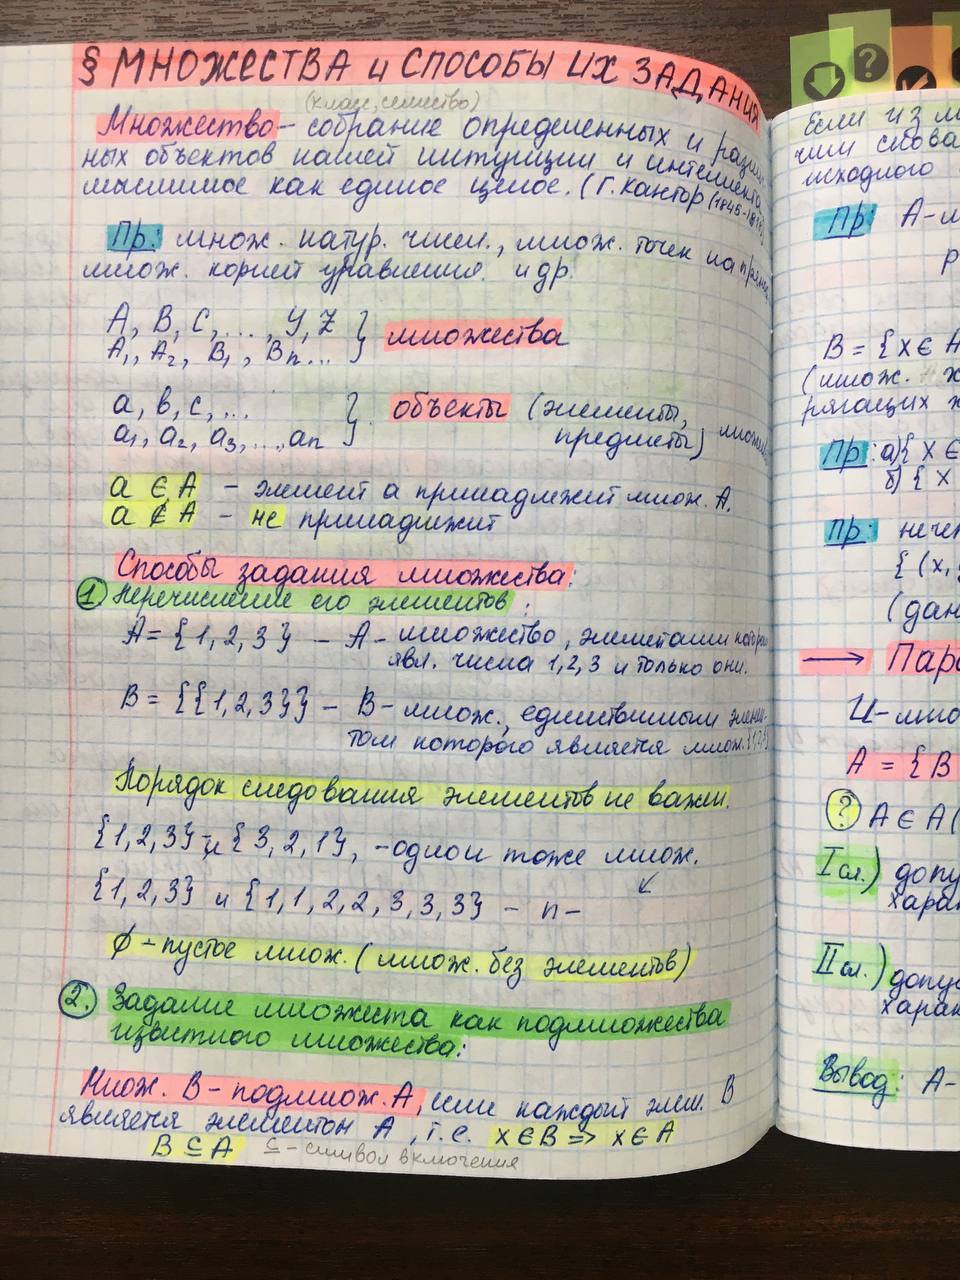 § МНОЖЕСТВА и СПОСОБЫ ИХ ЗАДАНИЯ
(класс, семейство)
Множество - собрание определенных и различ-
ных объектов нашей интуиции и интеллекта,
мыслимое как единое целое. (Г. Кантор (1845-1918))
Пр: множ. натур. чисел., множ. точек на прямой
множ. корней уравнения. и др.
A, B, C, ... , Y, Z } множества
A1, A2, B1, Bn ...
a, b, c, ... } объекты (элементы,
a1, a2, a3, ..., an предметы)
a ∈ A - элемент a принадлежит множ. A.
a ∉ A - не принадлежит
Способы задания множества:
1. Перечисление его элементов :
A = {1, 2, 3} - A - множество, элементами которого
явл. числа 1, 2, 3 и только они.
B = {{1, 2, 3}} - B - множ., единственным элемен-
том которого является множ. {1,2,3}
Порядок следования элементов не важен.
{1, 2, 3} и {3, 2, 1}, - одно и тоже множ.
{1, 2, 3} и {1, 1, 2, 2, 3, 3, 3} - п - ↙
∅ - пустое множ. (множ. без элементов)
2. Задание множества как подмножества
известного множества:
Множ. B - подмнож. A, если каждый элем. B
является элементом A, т.е. x ∈ B => x ∈ A
B ⊆ A ⊆ - символ включения
Если из м
чим снова
исходного
Пр: A - м
р
B = {x ∈ A
(множ. х
рягащих х
Пр: а) { x ∈
б) { x
Пр: нечет
{ (x,
(дан
→ Пара
U - мно
A = { B
? A ∈ A (
I сл.) допу
харак
II сл.) допу
харак
Вывод: A -